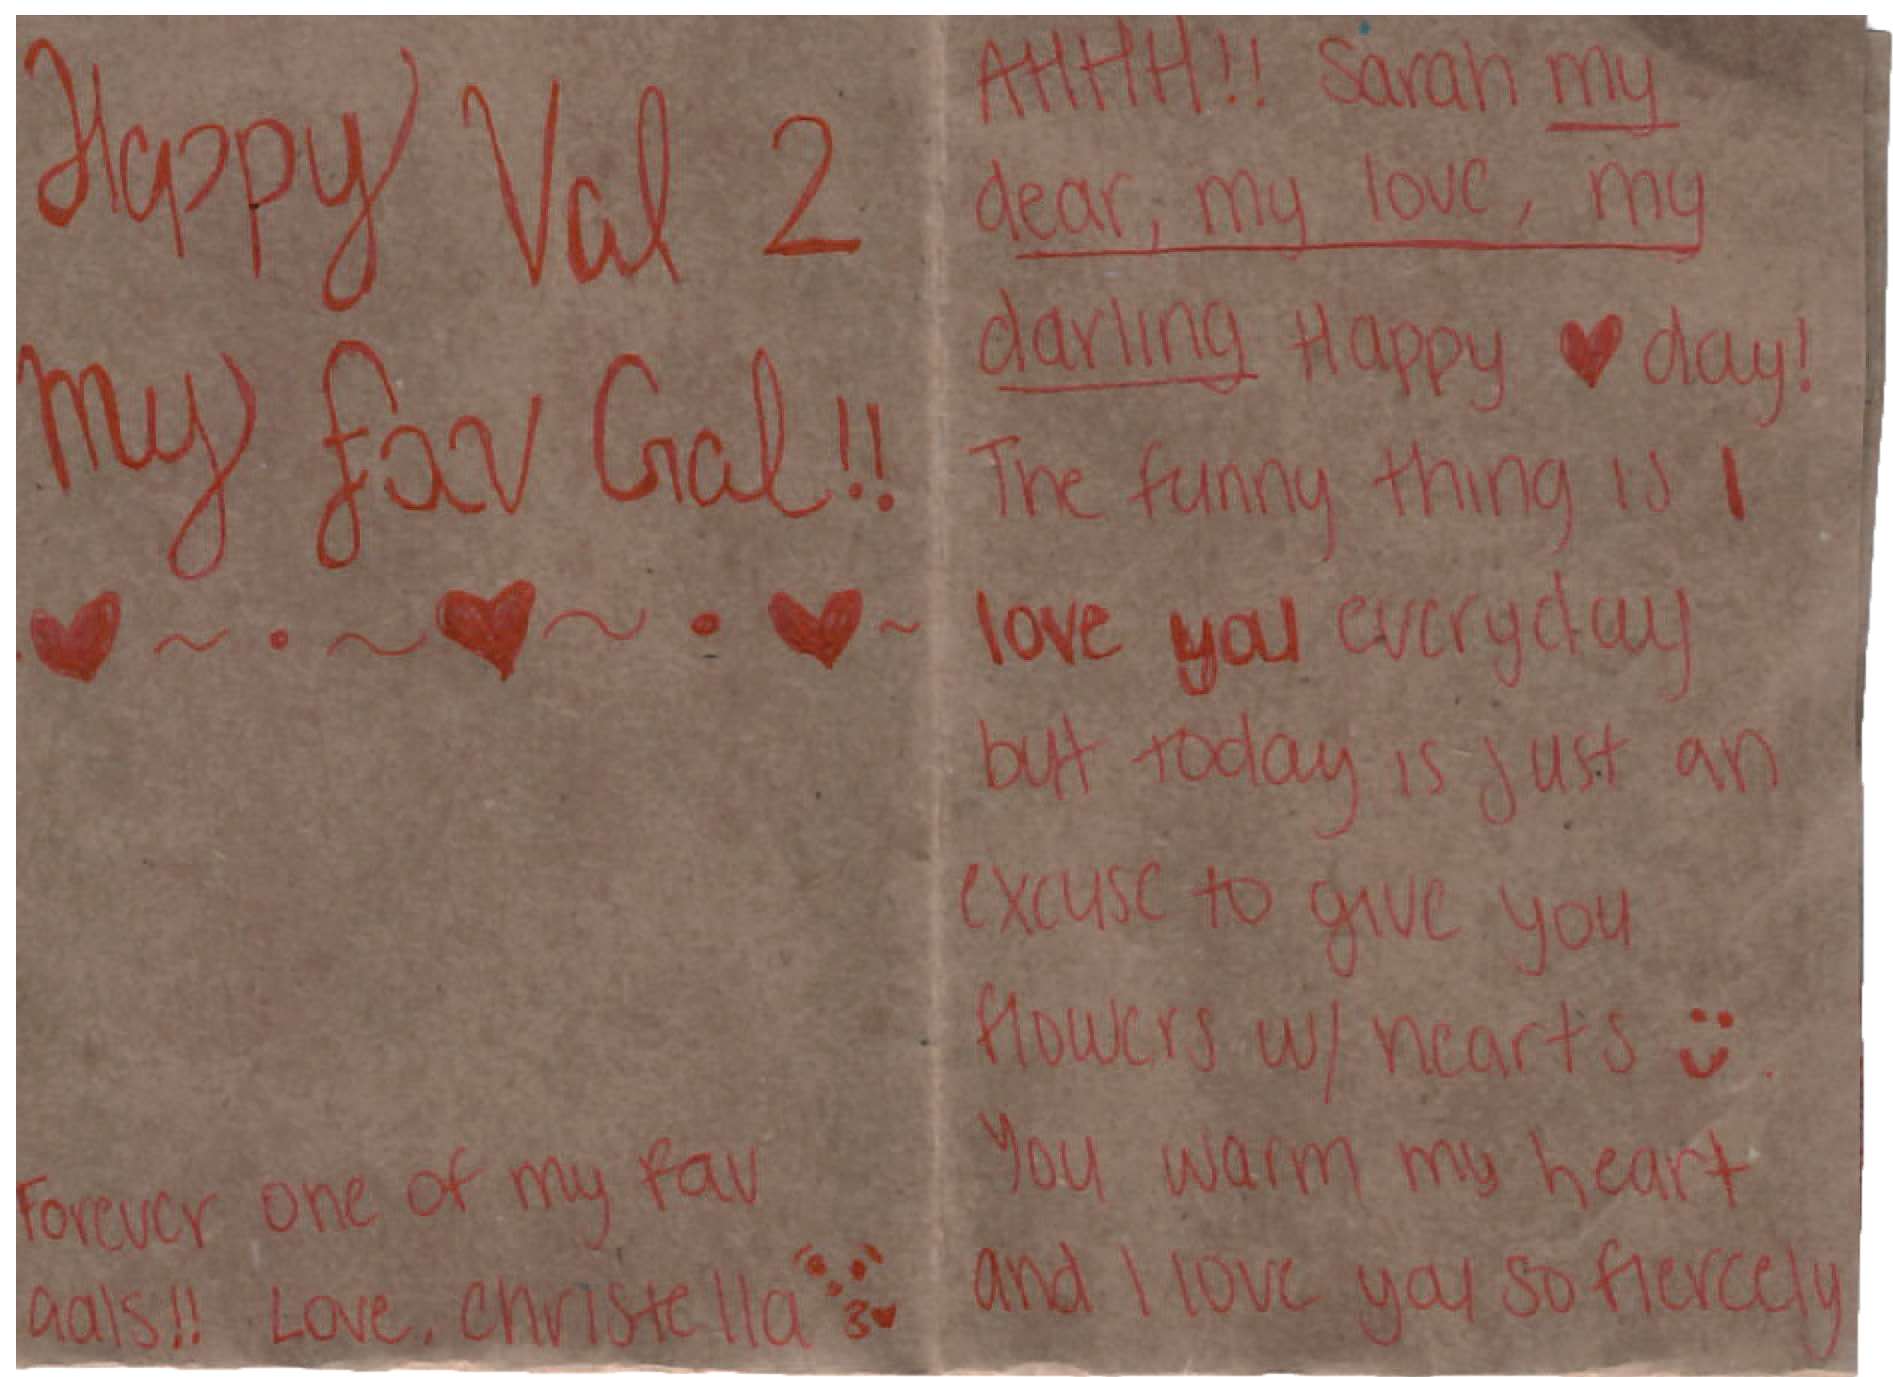 Happy Val 2
My fav Gal!!
♥ ~ • ~ ♥ ~ • ♥ ~
Forever one of my fav
gals!! Love, Christella
AHHH!! Sarah my
dear, my love, my
darling Happy ♥ day!
The funny thing is I
love you everyday
but today is just an
excuse to give you
flowers w/ hearts :) .
You warm my heart
and I love you so fiercely